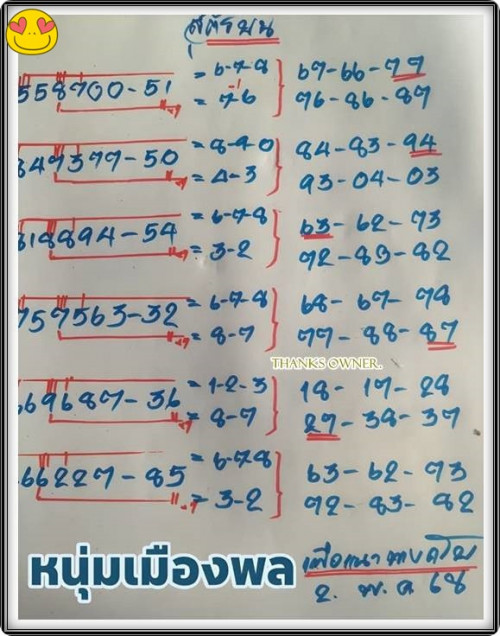 สูตรบน
558700-51 = 6-7-8 67-66-77
= 76 76-86-87
849377-50 = 8-9-0 84-83-94
= 4-3 93-04-03
818894-54 = 6-7-8 63-62-73
= 3-2 72-83-82
757563-32 = 6-7-8 68-67-78
= 8-7 77-88-87
THANKS OWNER.
669687-36 = 1-2-3 18-17-28
= 8-7 27-38-37
66227-85 = 6-7-8 63-62-73
= 3-2 72-83-82
หนุ่มเมืองพล
2. พ.ค 68